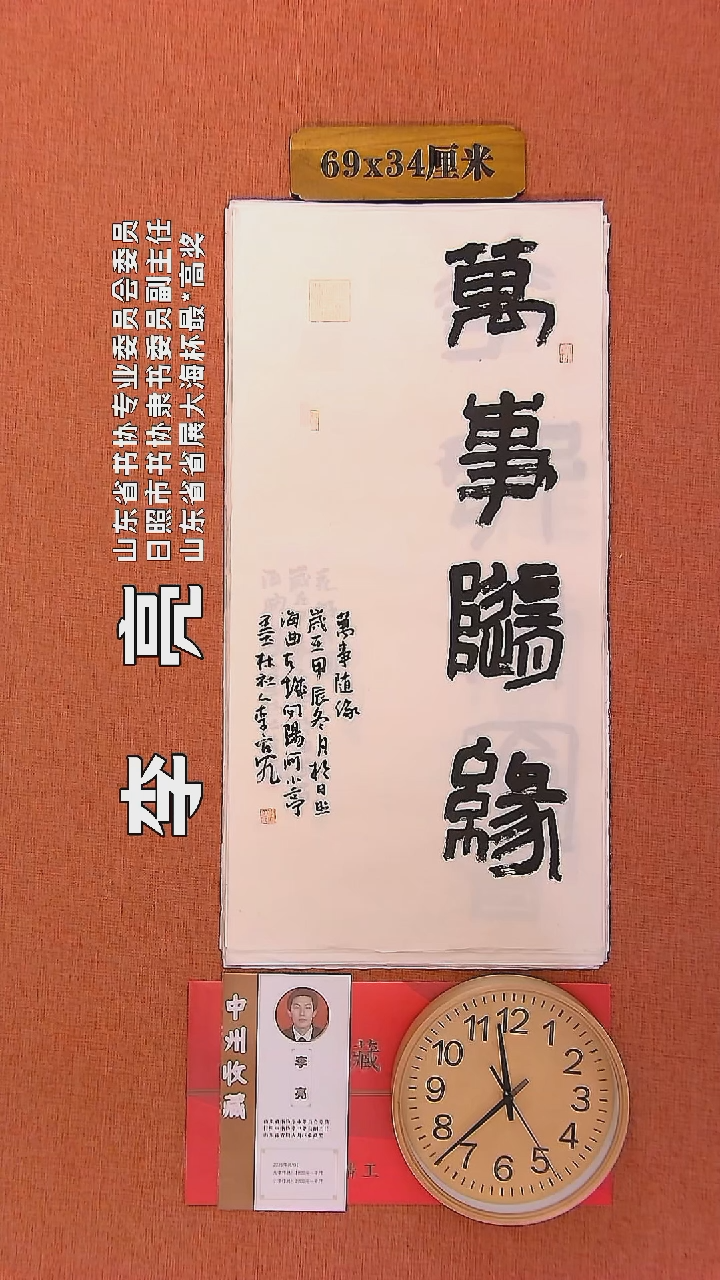 69x34厘米
萬事隨緣
萬事随缘
歲在甲辰冬月於日照
海曲古城向陽河小亭
李亮
山东省书协专业委员会委员
日照市书协隶书委员副主任
山东省省展大海杯最*高奖
中州收藏
李亮
藏
12
1
2
3
4
5
6
7
8
9
10
11